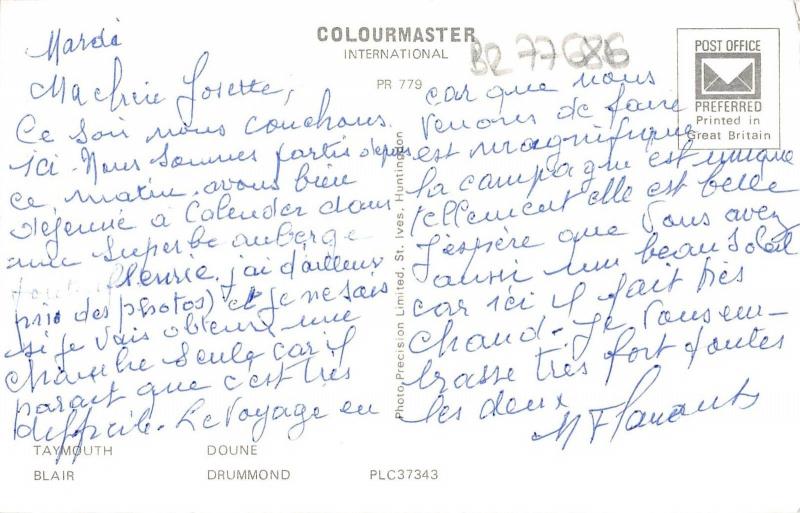 COLOURMASTER
INTERNATIONAL
PR 779
BR 77686
POST OFFICE
PREFERRED
Printed in
Great Britain
Mardi
Ma chère Josette,
Ce soir nous couchons
ici. Nous sommes partis depuis
ce matin. avons bien
déjeuné à Calender dans
une superbe auberge
fleurie, j'ai d'ailleurs
pris des photos) et je ne sais
si je vais obtenir une
chambre seule car il
parait que c'est très
difficile. Le voyage en
car que nous
venons de faire
est magnifique
la campagne est unique
tellement elle est belle
J'espère que vous avez
aussi un beau soleil
car ici il fait très
chaud. Je vous em-
brasse très fort toutes
les deux
Photo Precision Limited, St. Ives, Huntingdon
TAYMOUTH DOUNE
BLAIR DRUMMOND PLC37343